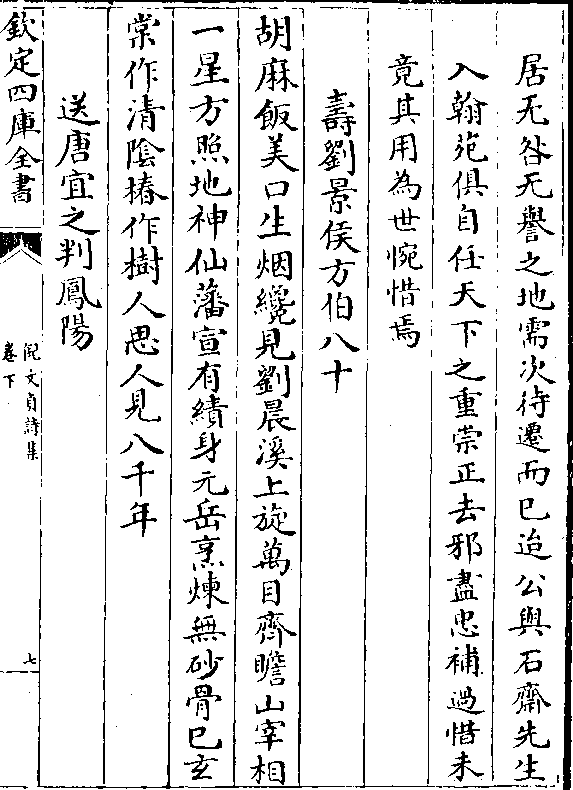 居无咎无譽之地需次待遷而已迨公與石齋先生
入翰苑俱自任天下之重崇正去邪盡忠補過惜未
竟其用為世惋惜焉
壽劉景侯方伯八十
胡麻飯美口生烟纔見劉晨溪上旋萬目齊瞻山宰相
一星方照地神仙藩宣有績身元岳烹煉無砂骨已玄
棠作清陰椿作樹人思人見八千年
送唐宜之判鳳陽
欽定四庫全書
倪文貞詩集
卷下
七